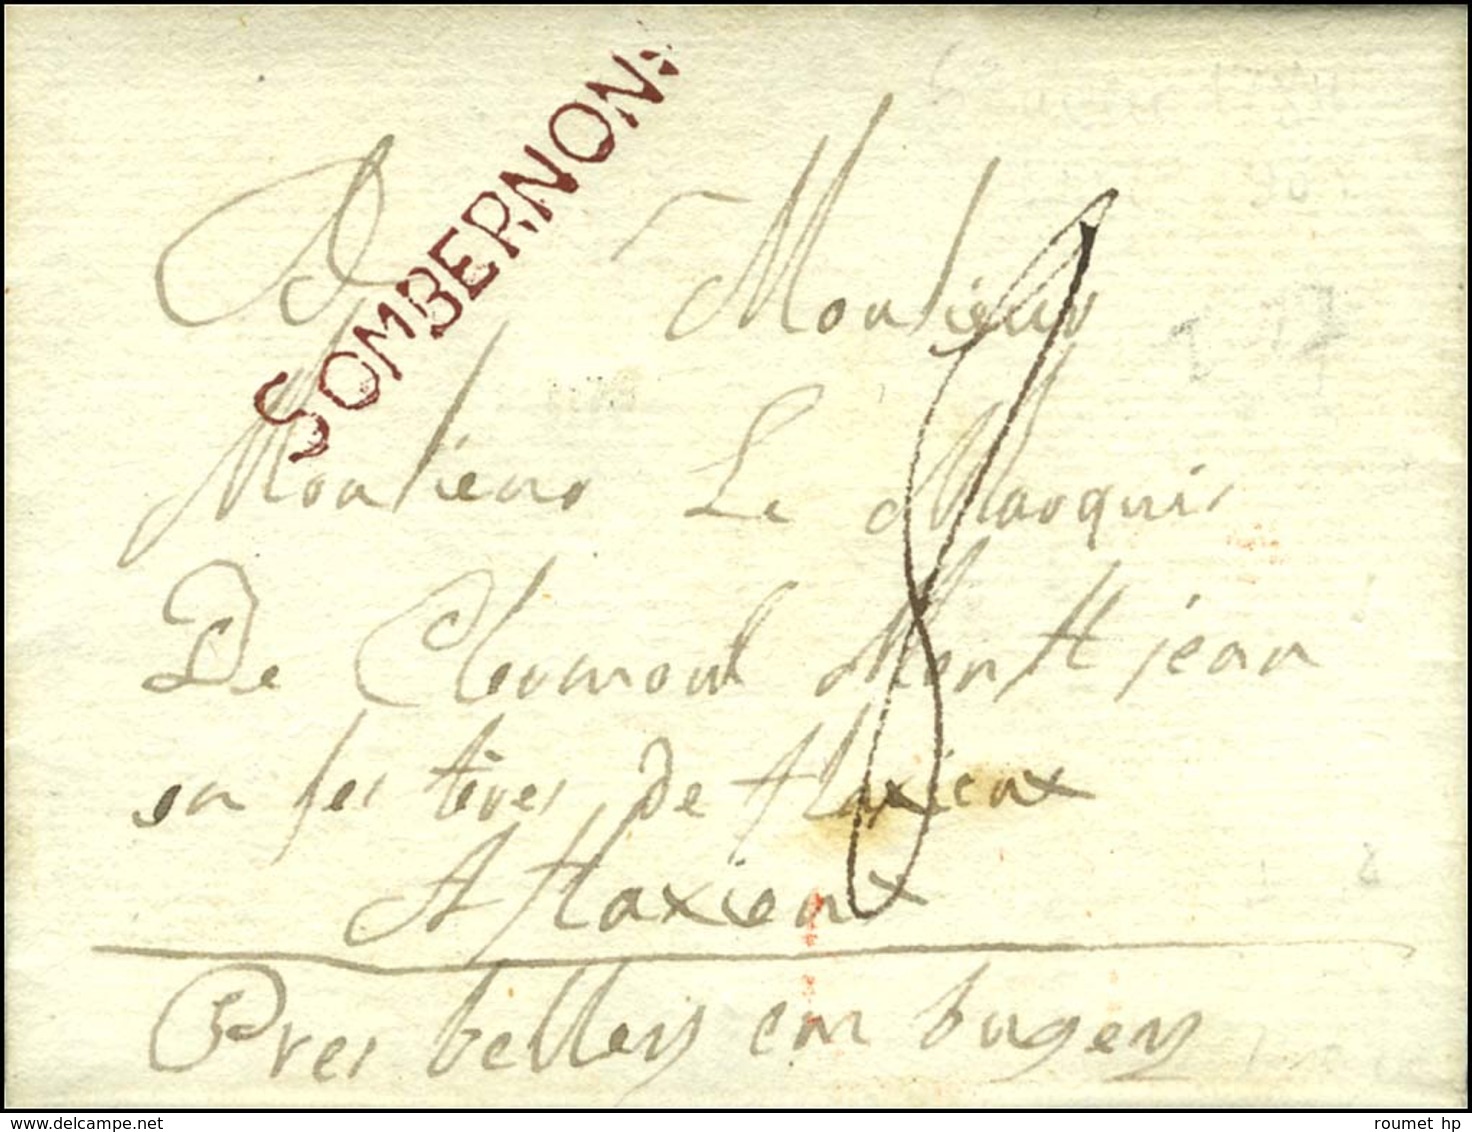 SOMBERNON
A Monsieur
Monsieur Le Marquis
De Clermont Mont jean
en ses terres de flaxieux
A flaxieux
Pres belley en bugey
8
roumet hp